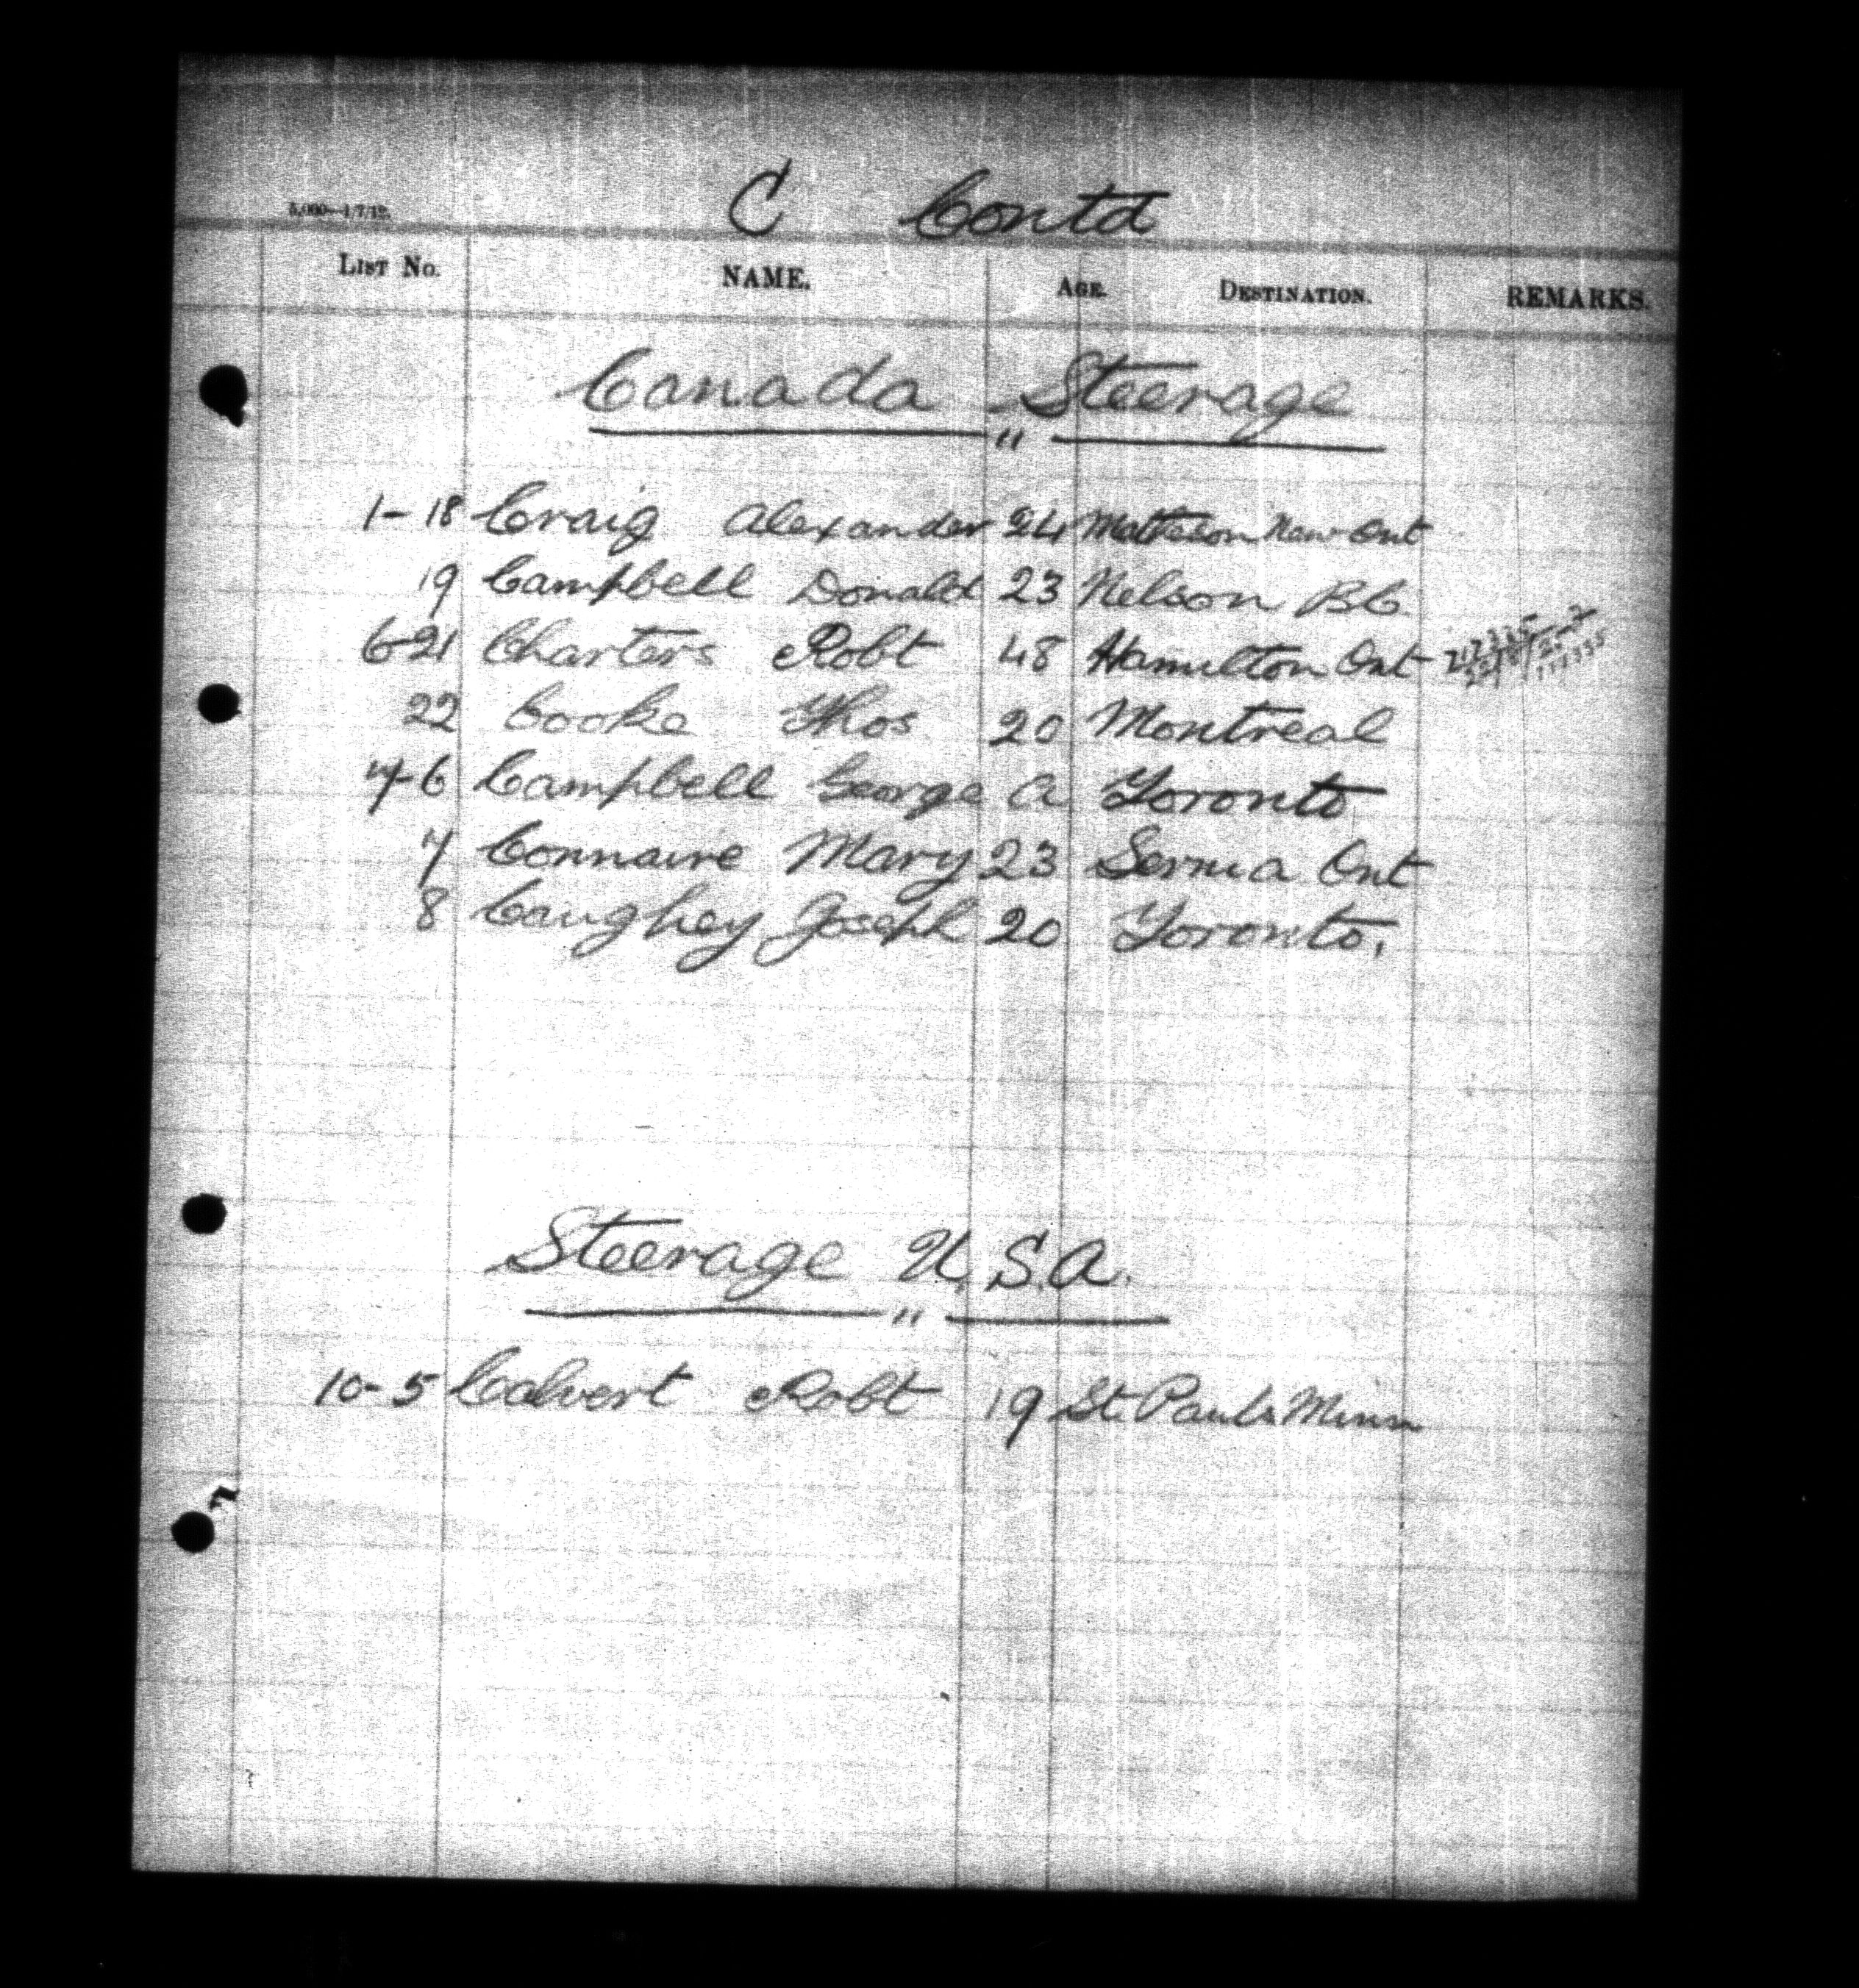 5,000—1/7/12.
C Contd
LIST NO. NAME. AGE. DESTINATION. REMARKS.
Canada " Steerage
1-18 Craig Alexander 24 Matheson New Ont
19 Campbell Donald 23 Nelson BC.
6-21 Charters Robt 48 Hamilton Ont
22 Cooke Thos 20 Montreal
7-6 Campbell George A Toronto
7 Connaire Mary 23 Sernia Ont
8 Caughey Joseph 20 Toronto.
Steerage " U.S.A.
10-5 Calvert Robt 19 St. Pauls Minn